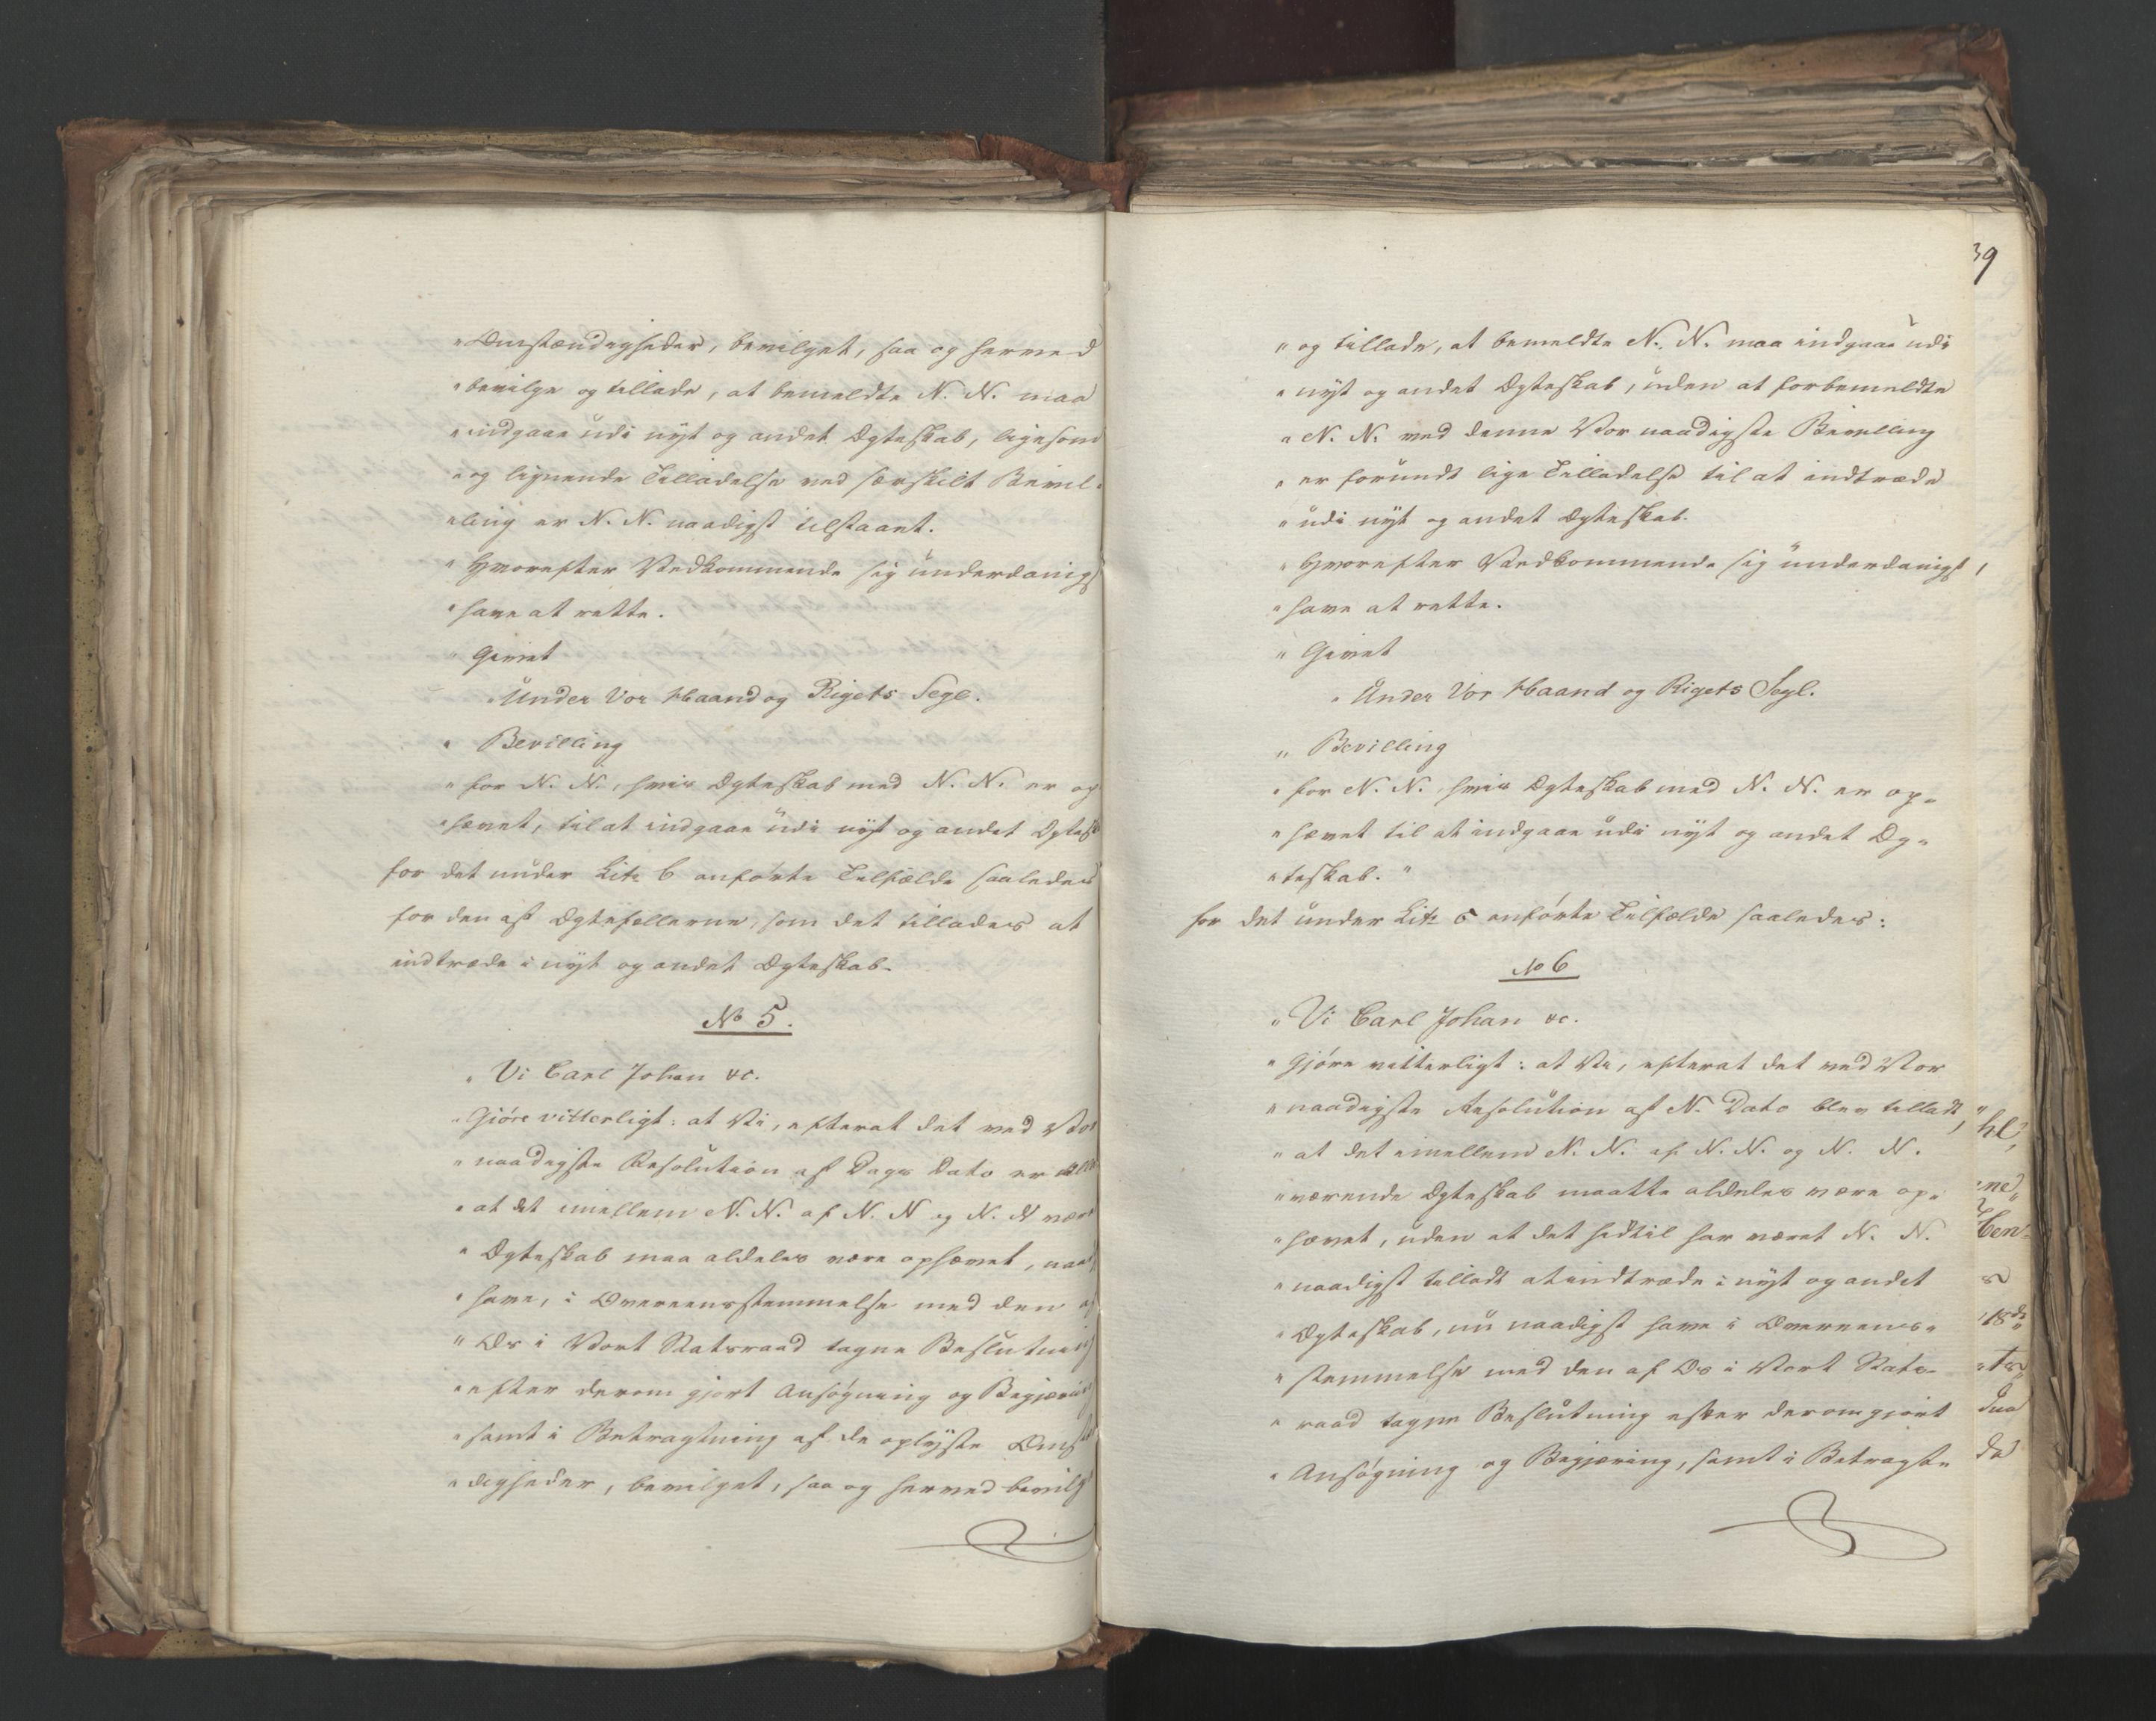 "Omstændigheder, bevilget, saa og herved
"bevilge og tillade, at bemeldte N. N. maa
"indgaae udi nyt og andet Ægteskab, ligesom
"og lignende Tilladelse ved særskilt Bevil-
"ling er N. N. naadigst tilstaaet.
"Hvorefter Vedkommende sig underdanigst
"have at rette.
"Givet
"Under Vor Haand og Rigets Segl.
"Bevilling
"for N. N., hvis Ægteskab med N. N. er op
"hævet, til at indgaae udi nyt og andet Ægtesk
for det under Litr b anførte Tilfælde saaledes
for den af Ægtefællerne, som det tillades at
indtræde i nyt og andet Ægteskab.
No 5.
"Vi Carl Johan &c.
"Gjöre vitterligt: at Vi, efterat det ved Vor
"naadigste Resolution af Dags Dato er
"at det imellem N. N. af N. N og N. N være
"Ægteskab maa aldeles være ophævet, naad
"have, i Overeensstemmelse med den af
"Os i Vort Statsraad tagne Beslutning
"efter derom gjort Ansøgning og Begjæring
"samt i Betragtning af de oplyste Omst
"digheder, bevilget, saa og herved bevilg
39
"og tillade, at bemeldte N. N. maa indgaae udi
"nyt og andet Ægteskab, uden at forbemeldte
"N. N. ved denne Vor naadigste Bevilling
"er forundt lige Tilladelse til at indtræde
"udi nyt og andet Ægteskab.
"Hvorefter Vedkommende sig underdanigst
"have at rette.
"Givet
"Under Vor Haand og Rigets Segl.
"Bevilling
"for N. N. hvis Ægteskab med N. N. er op-
"hævet til at indgaae udi nyt og andet Æg-
"teskab."
for det under Litr c anførte Tilfælde saaledes:
No 6
"Vi Carl Johan &c.
"Gjöre vitterligt: at Vi, efterat det ved Vor
"naadigste Resolution af N. Dato blev tilladt,
"at det imellem N. N. af N. N. og N. N.
"værende Ægteskab maatte aldeles være op-
"hævet, uden at det hidtil har været N. N.
"naadigst tilladt at indtræde i nyt og andet
"Ægteskab, nu naadigst have i Overeens-
"stemmelse med den af Os i Vort Stats-
"raad tagne Beslutning efter derom gjort
"Ansøgning og Begjæring, samt i Betragt-